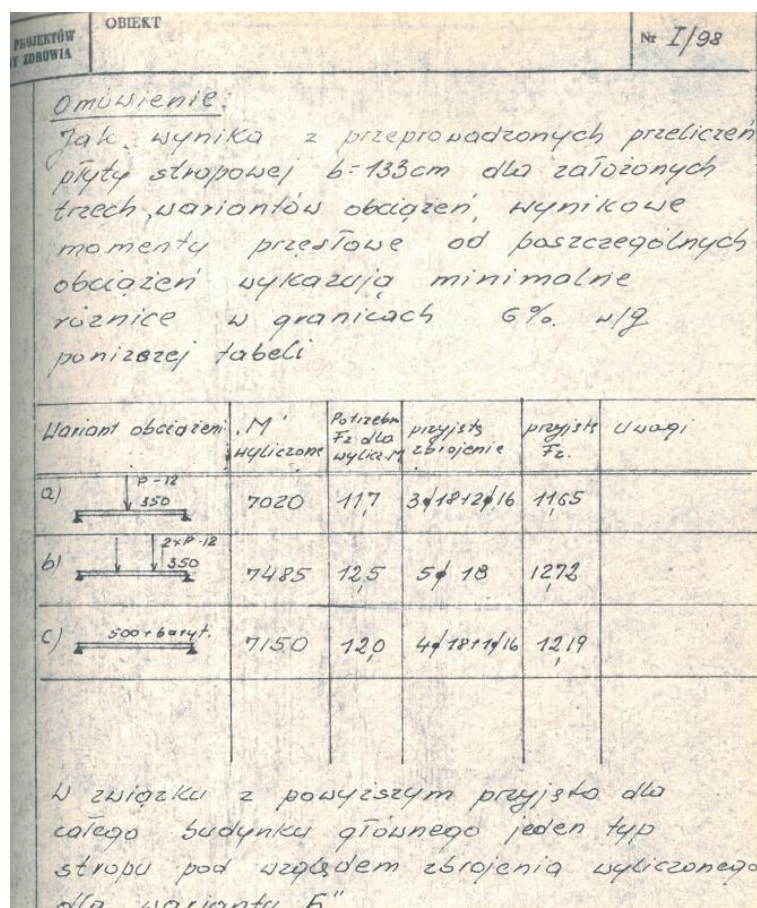 PROJEKTÓW
ZDROWIA
OBIEKT
Nr I/98
Omówienie:
Jak wynika z przeprowadzonych przeliczeń
płyty stropowej b=133cm dla założonych
trzech wariantów obciążeń, wynikowe
momenty przęsłowe od poszczególnych
obciążeń wykazują minimalne
różnice w granicach 6%. w/g
poniższej tabeli
Wariant obciążeni "M" wyliczone Potrzebn Fz dla wylicz. M przyjęto zbrojenie przyjęte Fz. Uwagi
a) P-12 350 7020 11,7 3ϕ18+2ϕ16 11,65
b) 2xP-12 350 7485 12,5 5ϕ18 12,72
c) 500+baryt. 7150 12,0 4ϕ18+1ϕ16 12,19
W związku z powyższym przyjęto dla
całego budynku głównego jeden typ
stropu pod względem zbrojenia wyliczonego
dla wariantu "b"